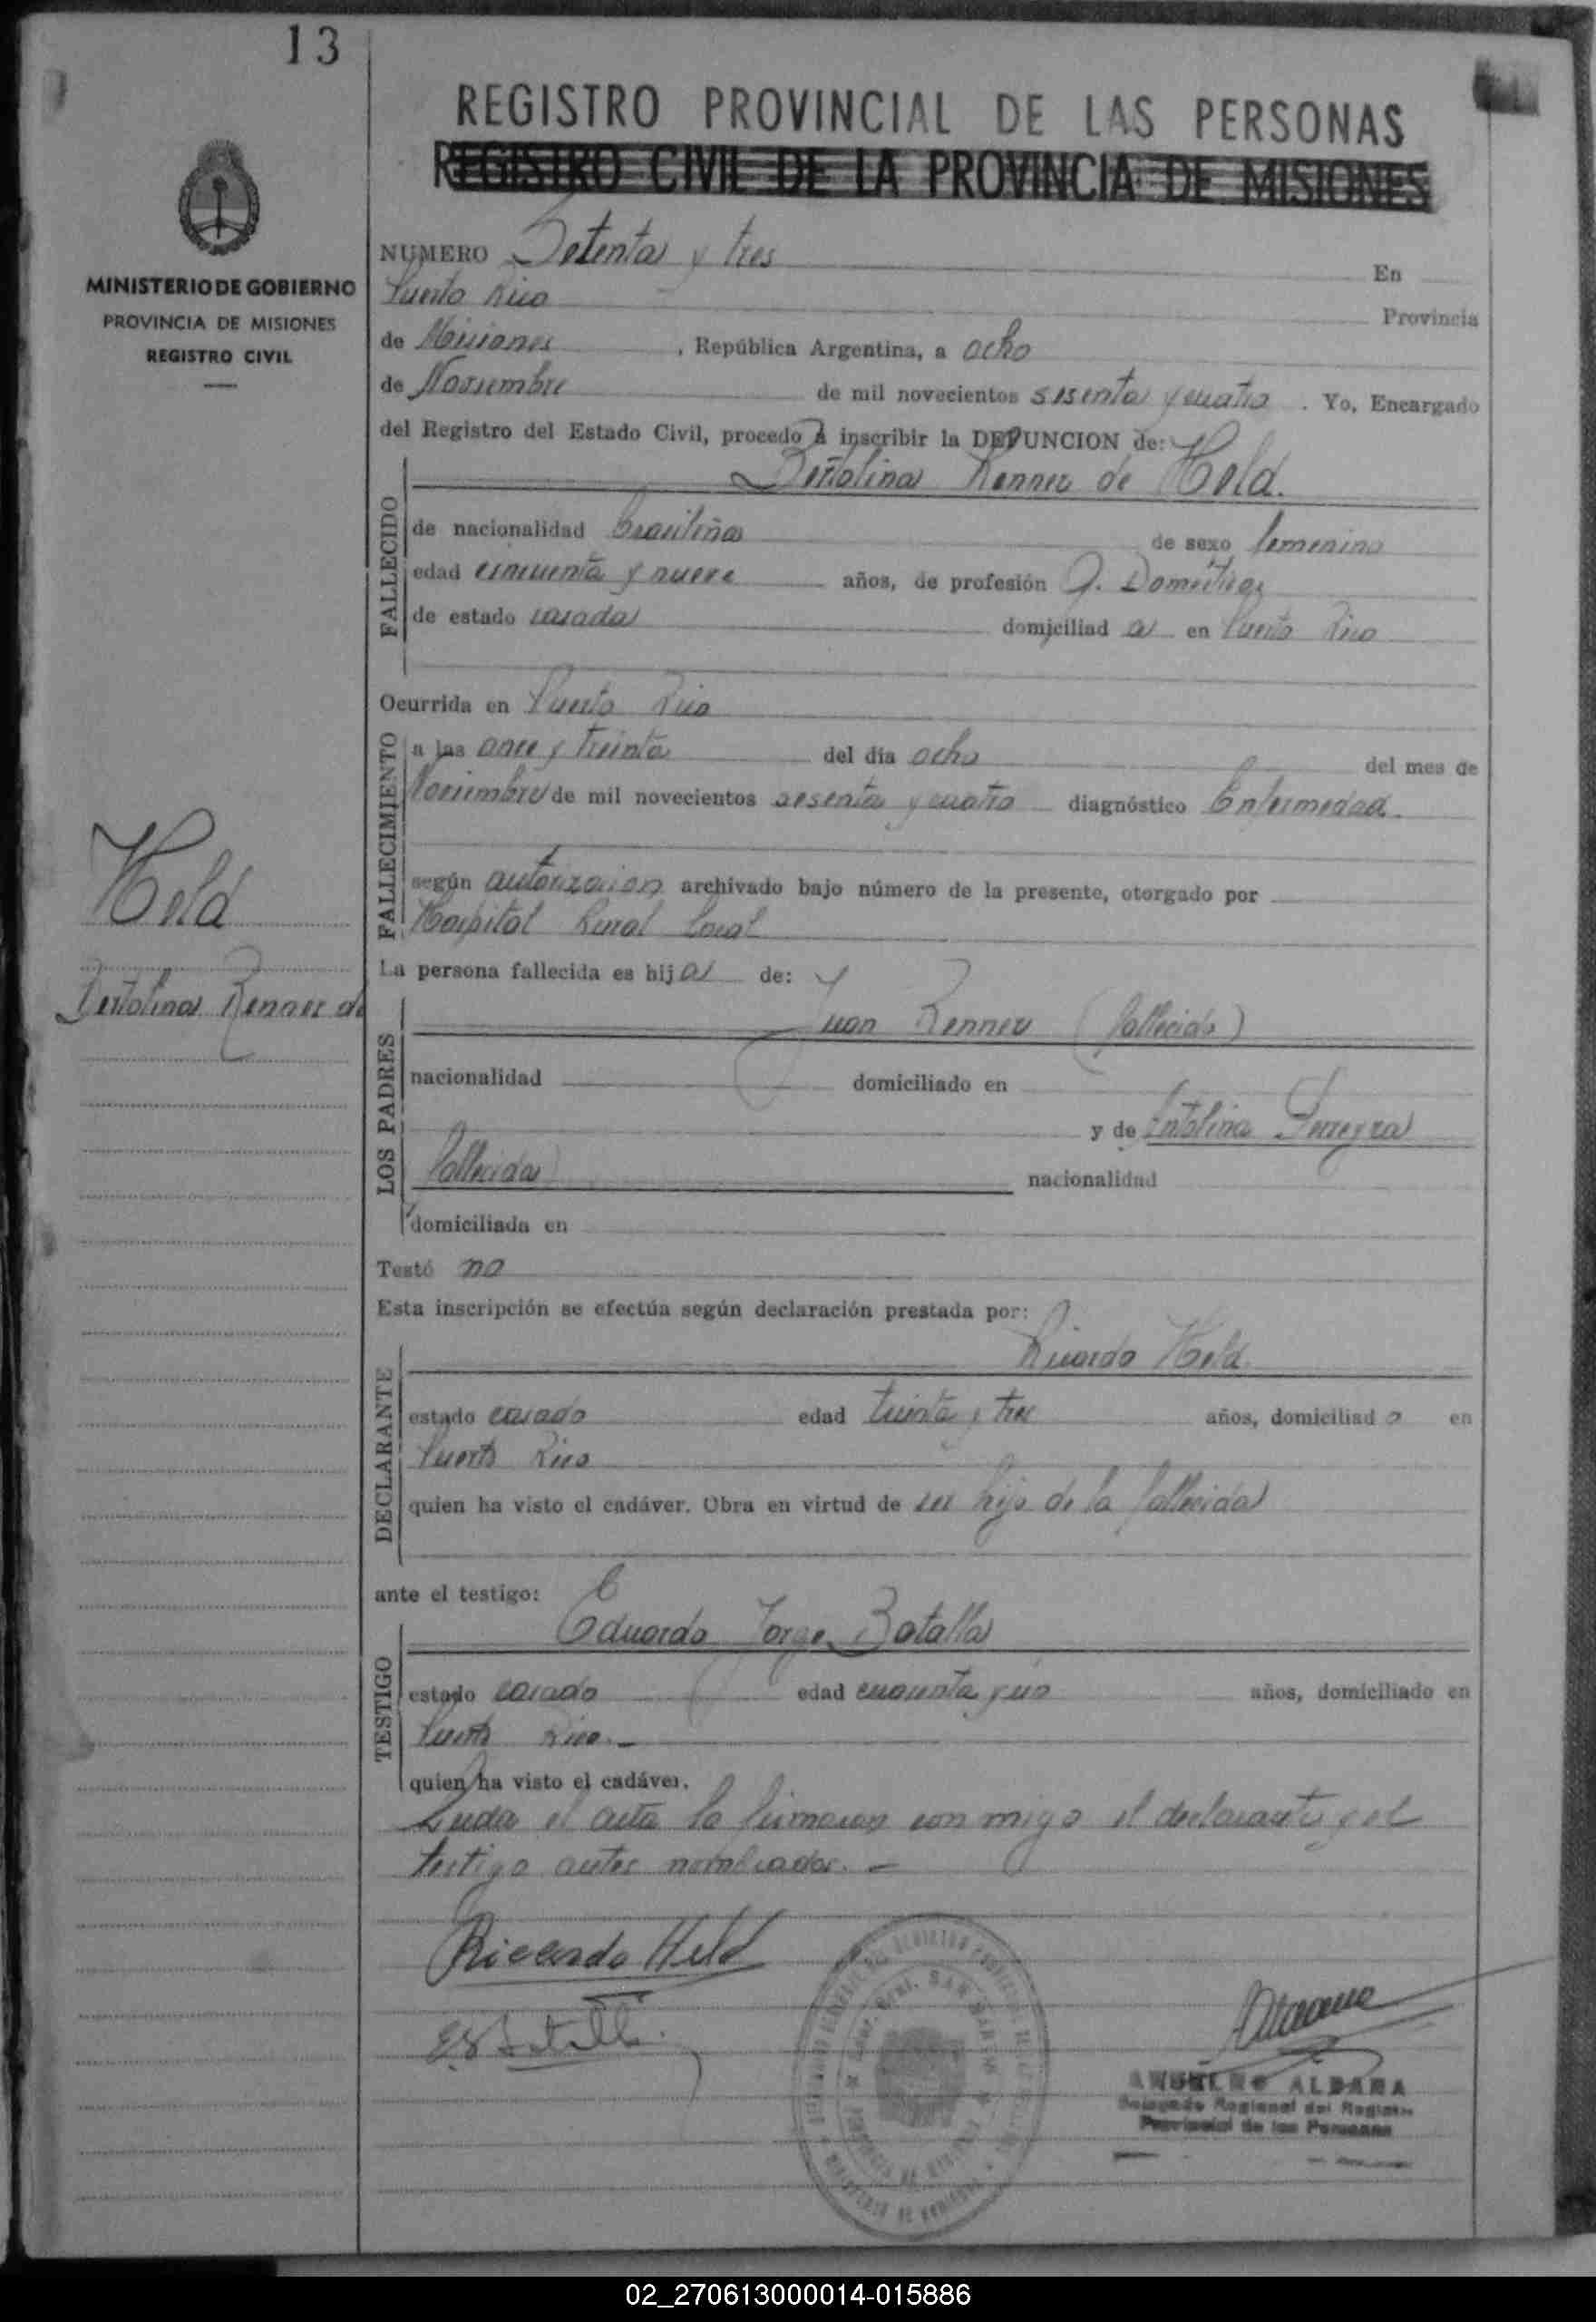 13
REGISTRO PROVINCIAL DE LAS PERSONAS
REGISTRO CIVIL DE LA PROVINCIA DE MISIONES
MINISTERIO DE GOBIERNO
PROVINCIA DE MISIONES
REGISTRO CIVIL
NUMERO Setenta y tres En
Puerto Rico Provincia
de Misiones, República Argentina, a ocho
de Noviembre de mil novecientos sesenta y cuatro. Yo, Encargado
del Registro del Estado Civil, procedo a inscribir la DEFUNCION de:
Bertolina Renner de Held.
FALLECIDO
de nacionalidad brasileña de sexo femenino
edad cincuenta y nueve años, de profesión Q. Domésticos
de estado casada domiciliad a en Puerto Rico
Ocurrida en Puerto Rico
FALLECIMIENTO
a las once y treinta del día ocho del mes de
Noviembre de mil novecientos sesenta y cuatro diagnóstico Enfermedad.
según autorizacion archivado bajo número de la presente, otorgado por
Hospital Rural Local
Held
Bertolina Renner de
La persona fallecida es hija de:
LOS PADRES
Juan Renner (fallecido)
nacionalidad domiciliado en
y de Ferreyra
fallecida nacionalidad
domiciliada en
Testó no
Esta inscripción se efectúa según declaración prestada por:
DECLARANTE
Ricardo Held
estado casado edad treinta y tres años, domiciliad o en
Puerto Rico
quien ha visto el cadáver. Obra en virtud de ser hijo de la fallecida
ante el testigo:
TESTIGO
Eduardo Jorge Batalla
estado casado edad cuarenta y un años, domiciliado en
Puerto Rico.-
quien ha visto el cadáver.
Leida el acta la firmaron con migo el declarante y el
testigo antes nombrados.-
Ricardo Held
ALDANA
Delegado Regional del Registro
Provincial de las Personas
02_270613000014-015886